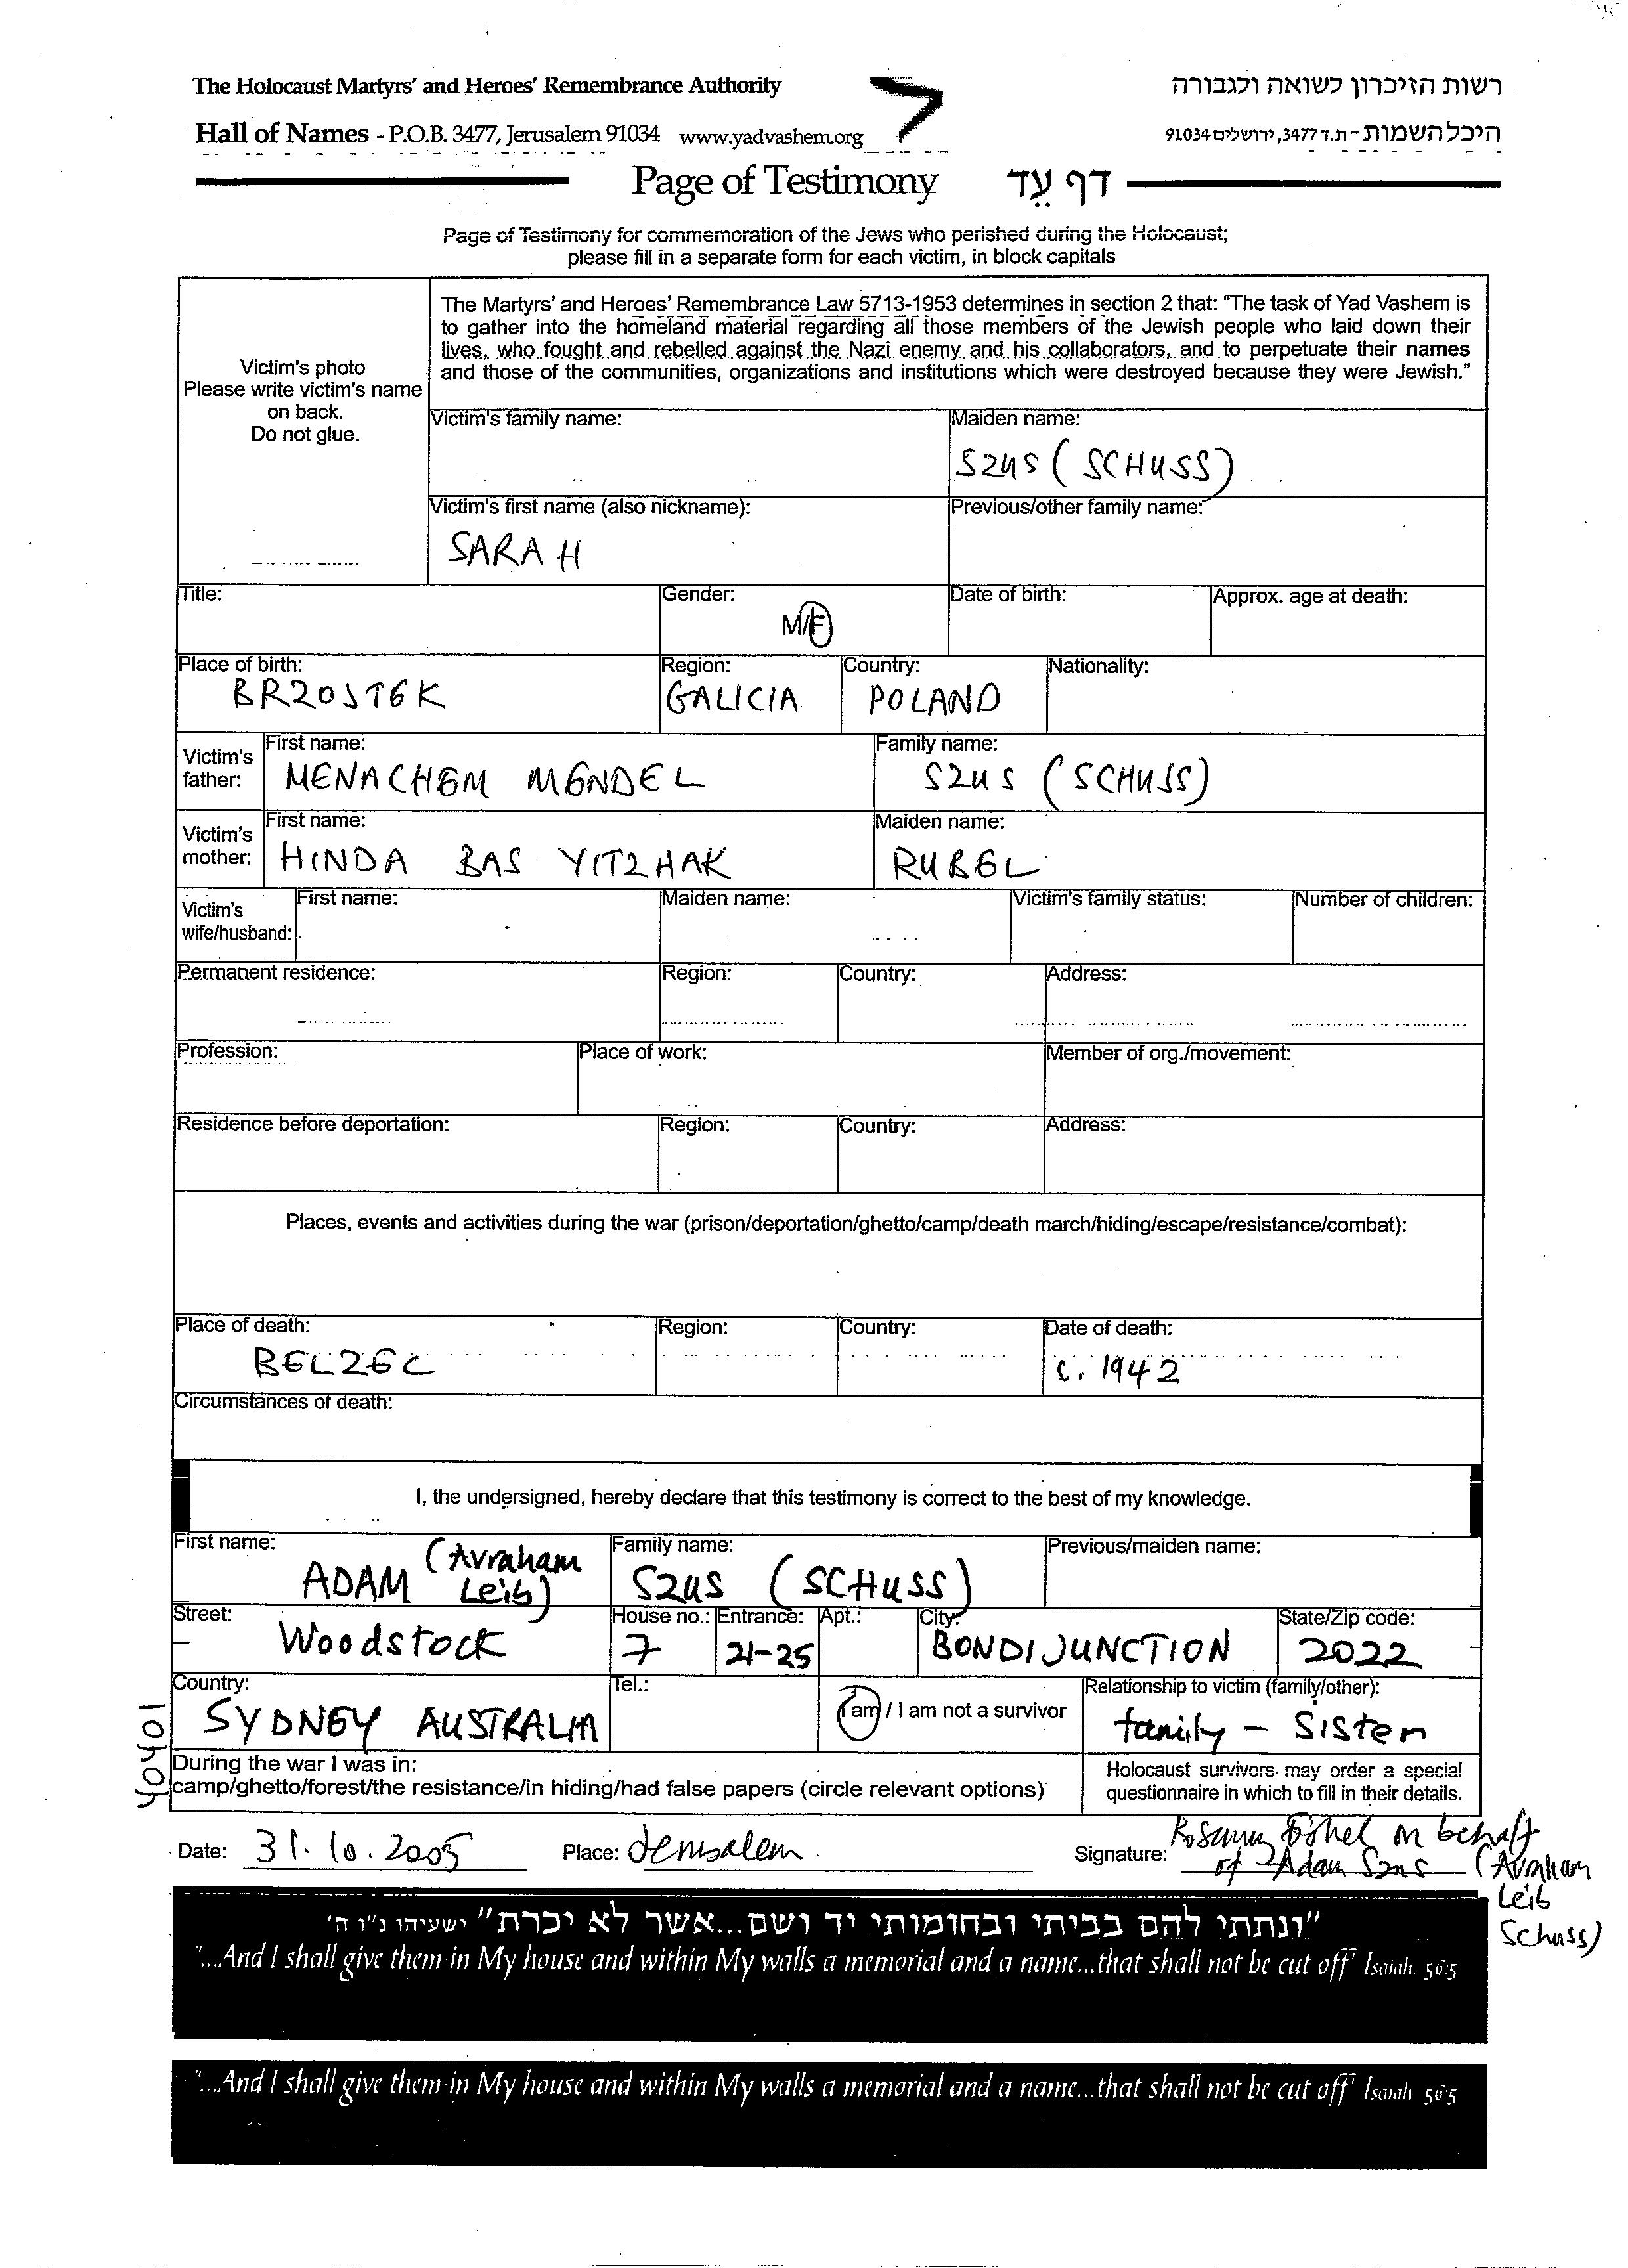 The Holocaust Martyrs' and Heroes' Remembrance Authority
רשות הזיכרון לשואה ולגבורה
Hall of Names - P.O.B. 3477, Jerusalem 91034 www.yadvashem.org
היכל השמות - ת.ד 3477, ירושלים 91034
Page of Testimony דף עֵד
Page of Testimony for commemoration of the Jews who perished during the Holocaust;
please fill in a separate form for each victim, in block capitals
Victim's photo
Please write victim's name
on back.
Do not glue.
The Martyrs' and Heroes' Remembrance Law 5713-1953 determines in section 2 that: "The task of Yad Vashem is
to gather into the homeland material regarding all those members of the Jewish people who laid down their
lives, who fought and rebelled against the Nazi enemy and his collaborators, and to perpetuate their names
and those of the communities, organizations and institutions which were destroyed because they were Jewish."
Victim's family name: Maiden name:
SZUS (SCHUSS)
Victim's first name (also nickname): Previous/other family name:
SARAH
Title: Gender: Date of birth: Approx. age at death:
M/F
Place of birth: Region: Country: Nationality:
BRZOSTEK GALICIA POLAND
Victim's father: First name: Family name:
MENACHEM MENDEL SZUS (SCHUSS)
Victim's mother: First name: Maiden name:
HINDA BAS YITZHAK RUBEL
Victim's wife/husband: First name: Maiden name: Victim's family status: Number of children:
Permanent residence: Region: Country: Address:
Profession: Place of work: Member of org./movement:
Residence before deportation: Region: Country: Address:
Places, events and activities during the war (prison/deportation/ghetto/camp/death march/hiding/escape/resistance/combat):
Place of death: Region: Country: Date of death:
BELZEC c. 1942
Circumstances of death:
I, the undersigned, hereby declare that this testimony is correct to the best of my knowledge.
First name: Family name: Previous/maiden name:
ADAM (Avraham Leib) SZUS (SCHUSS)
Street: House no.: Entrance: Apt.: City: State/Zip code:
Woodstock 7 21-25 BONDI JUNCTION 2022
Country: Tel.: I am / I am not a survivor Relationship to victim (family/other):
SYDNEY AUSTRALIA family - Sister
During the war I was in:
camp/ghetto/forest/the resistance/in hiding/had false papers (circle relevant options)
Holocaust survivors may order a special
questionnaire in which to fill in their details.
Date: 31.10.2005 Place: Jerusalem Signature: on behalf
of Adam Szus (Avraham
Leib
Schuss)
"ונתתי להם בביתי ובחומותי יד ושם...אשר לא יכרת" ישעיהו נ"ו ה'
"...And I shall give them in My house and within My walls a memorial and a name...that shall not be cut off" Isaiah 56:5
"...And I shall give them in My house and within My walls a memorial and a name...that shall not be cut off" Isaiah 56:5